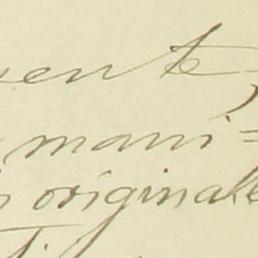 uente,
mani=
originale